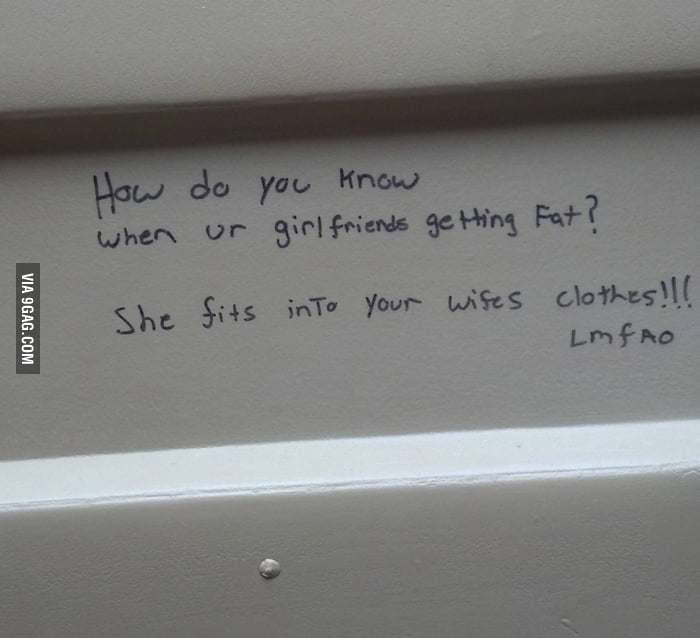 How do you know
when ur girlfriends getting Fat?
She fits inTo your wifes clothes!!!
LmfAO
VIA 9GAG.COM